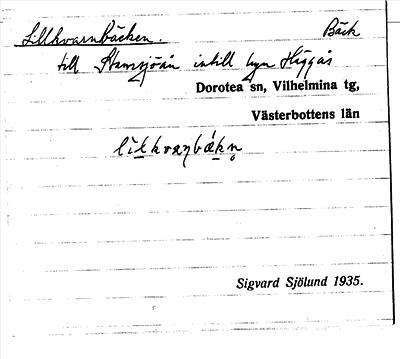 Lillkvarnbäcken. Bäck
till Stamsjöån intill byn Häggås
Dorotea sn, Vilhelmina tg,
Västerbottens län
Sigvard Sjölund 1935.